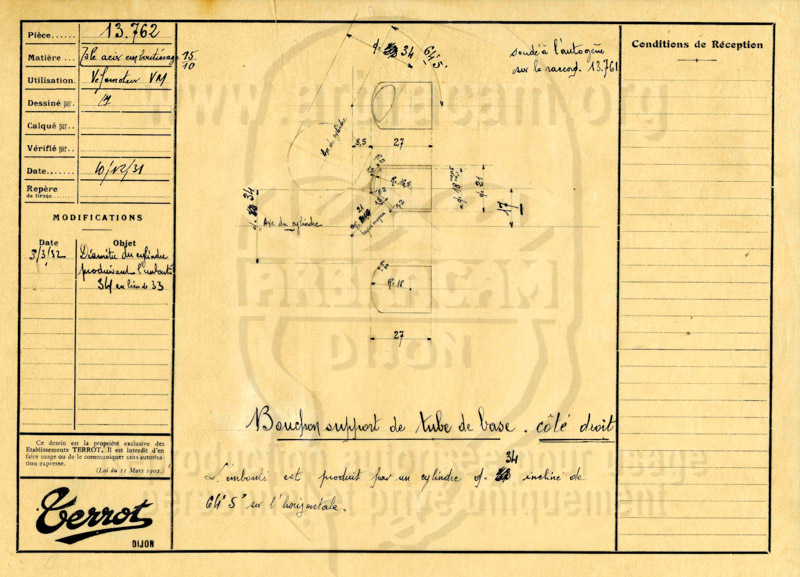 Pièce...... 13.762
Matière... Tôle acier emboutissage 15/10
Utilisation. Vélomoteur VM
Dessiné par.
Calqué par..
Vérifié par..
Date....... 10/12/31
Repère
de tirage.
MODIFICATIONS
Date Objet
5/3/32 Diamètre du cylindre
produisant l'embouti
34 au lieu de 33
Ce dessin est la propriété exclusive des
Etablissements TERROT, Il est interdit d'en
faire usage ou de le communiquer sans autorisa-
tion expresse.
(Loi du 11 Mars 1902.)
Terrot
DIJON
d. 34
64° 5'
soudé à l'autogène
sur le raccord. 13.761
Conditions de Réception
www.arbracam.org
Axe du cylindre
5,5
27
d. 34
Axe du cylindre
R. 16,5
12
17
ARBRACAM
DIJON
R. 16
27
Bouchon support de tube de base. côté droit
L'embouti est produit par un cylindre d. 34 incliné de
64° 5' sur l'horizontale.
reproduction autorisée pour usage
personnel et privé uniquement